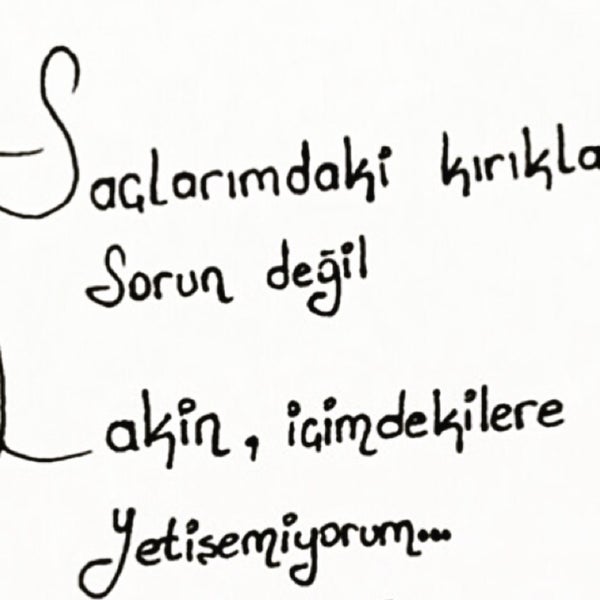 Saçlarımdaki kırıkla
Sorun değil
Lakin, içimdekilere
Yetişemiyorum...